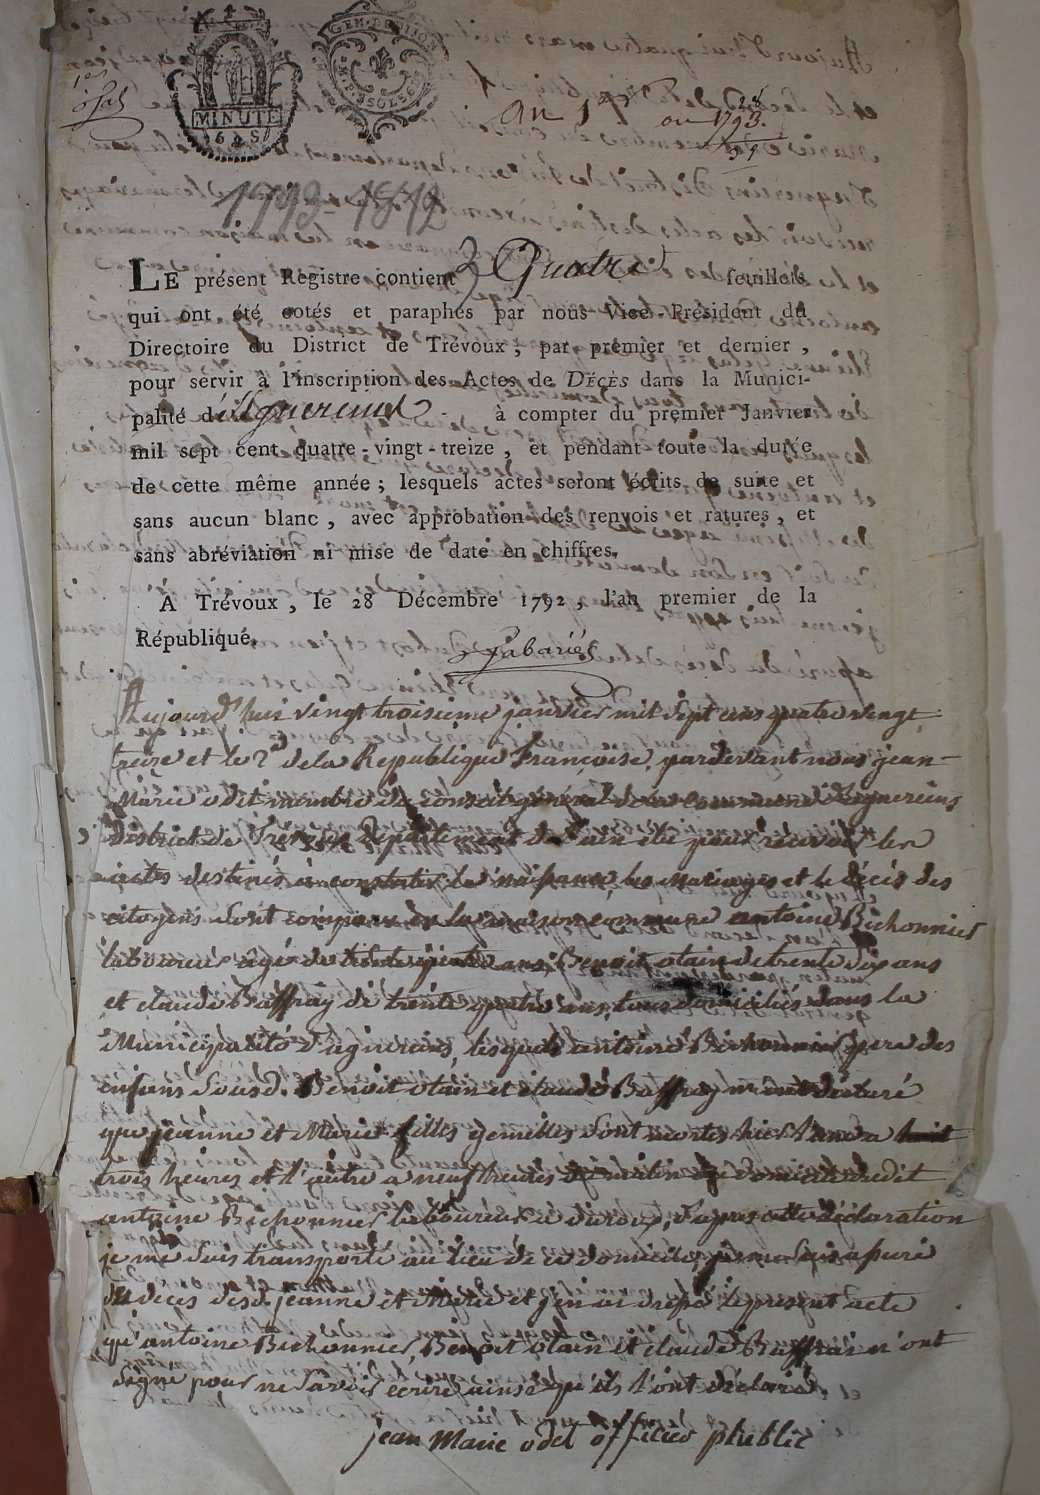 GEN. DE DIJON
MINUTE
6 D. 8 S.
an 1er
ou 1793.
1793-1812
LE présent Registre contient Quatre feuillets
qui ont été cotés et paraphés par nous Vice-Président du
Directoire du District de Trévoux, par premier et dernier,
pour servir à l'inscription des Actes de DÉCÈS dans la Munici-
palité d'Agnereins à compter du premier Janvier
mil sept cent quatre-vingt-treize, et pendant toute la durée
de cette même année; lesquels actes seront écrits de suite et
sans aucun blanc, avec approbation des renvois et ratures, et
sans abréviation ni mise de date en chiffres.
A Trévoux, le 28 Décembre 1792, l'an premier de la
République.
Gabariés
Aujourd'hui vingt troisieme janvier mil Sept cens quatre vingt
treize et le 2d de la Republique Françoise, pardevant nous jean-
Marie odet membre du conseil général de la commune d'Agnereins
district de Trévoux Département de l'ain élu pour recevoir les
actes destinés à constater la naissance, les Mariages et le décès des
citoyens Sont comparu en la maison commune antoine Bichonnier
laboureur agé de trente quatre ans Benoit olain de trente six ans
et claude Baffray de trente quatre ans, tous domiciliés dans la
Municipalité d'agnereins, lesquels antoine Bichonnier pere des
enfans Sousd. Benoit olain et claude Baffray m'ont déclaré
que jeanne et Marie filles gemelles Sont mortes hier l'une a huit
trois heures et l'autre a neuf heures du matin au domicile dudit
antoine Bichonnier laboureur a duroux, d'apres cette déclaration
je me Suis transporté au lieu de ce domicile, je me Suis assuré
du déces desd. jeanne et Marie et j'en ai dressé le present acte
qu'antoine Bichonnier, Benoit olain et claude Baffrai n'ont
Signé pour ne Savoir écrire ainsi qu'ils l'ont déclaré
jean Marie odet officier publlic